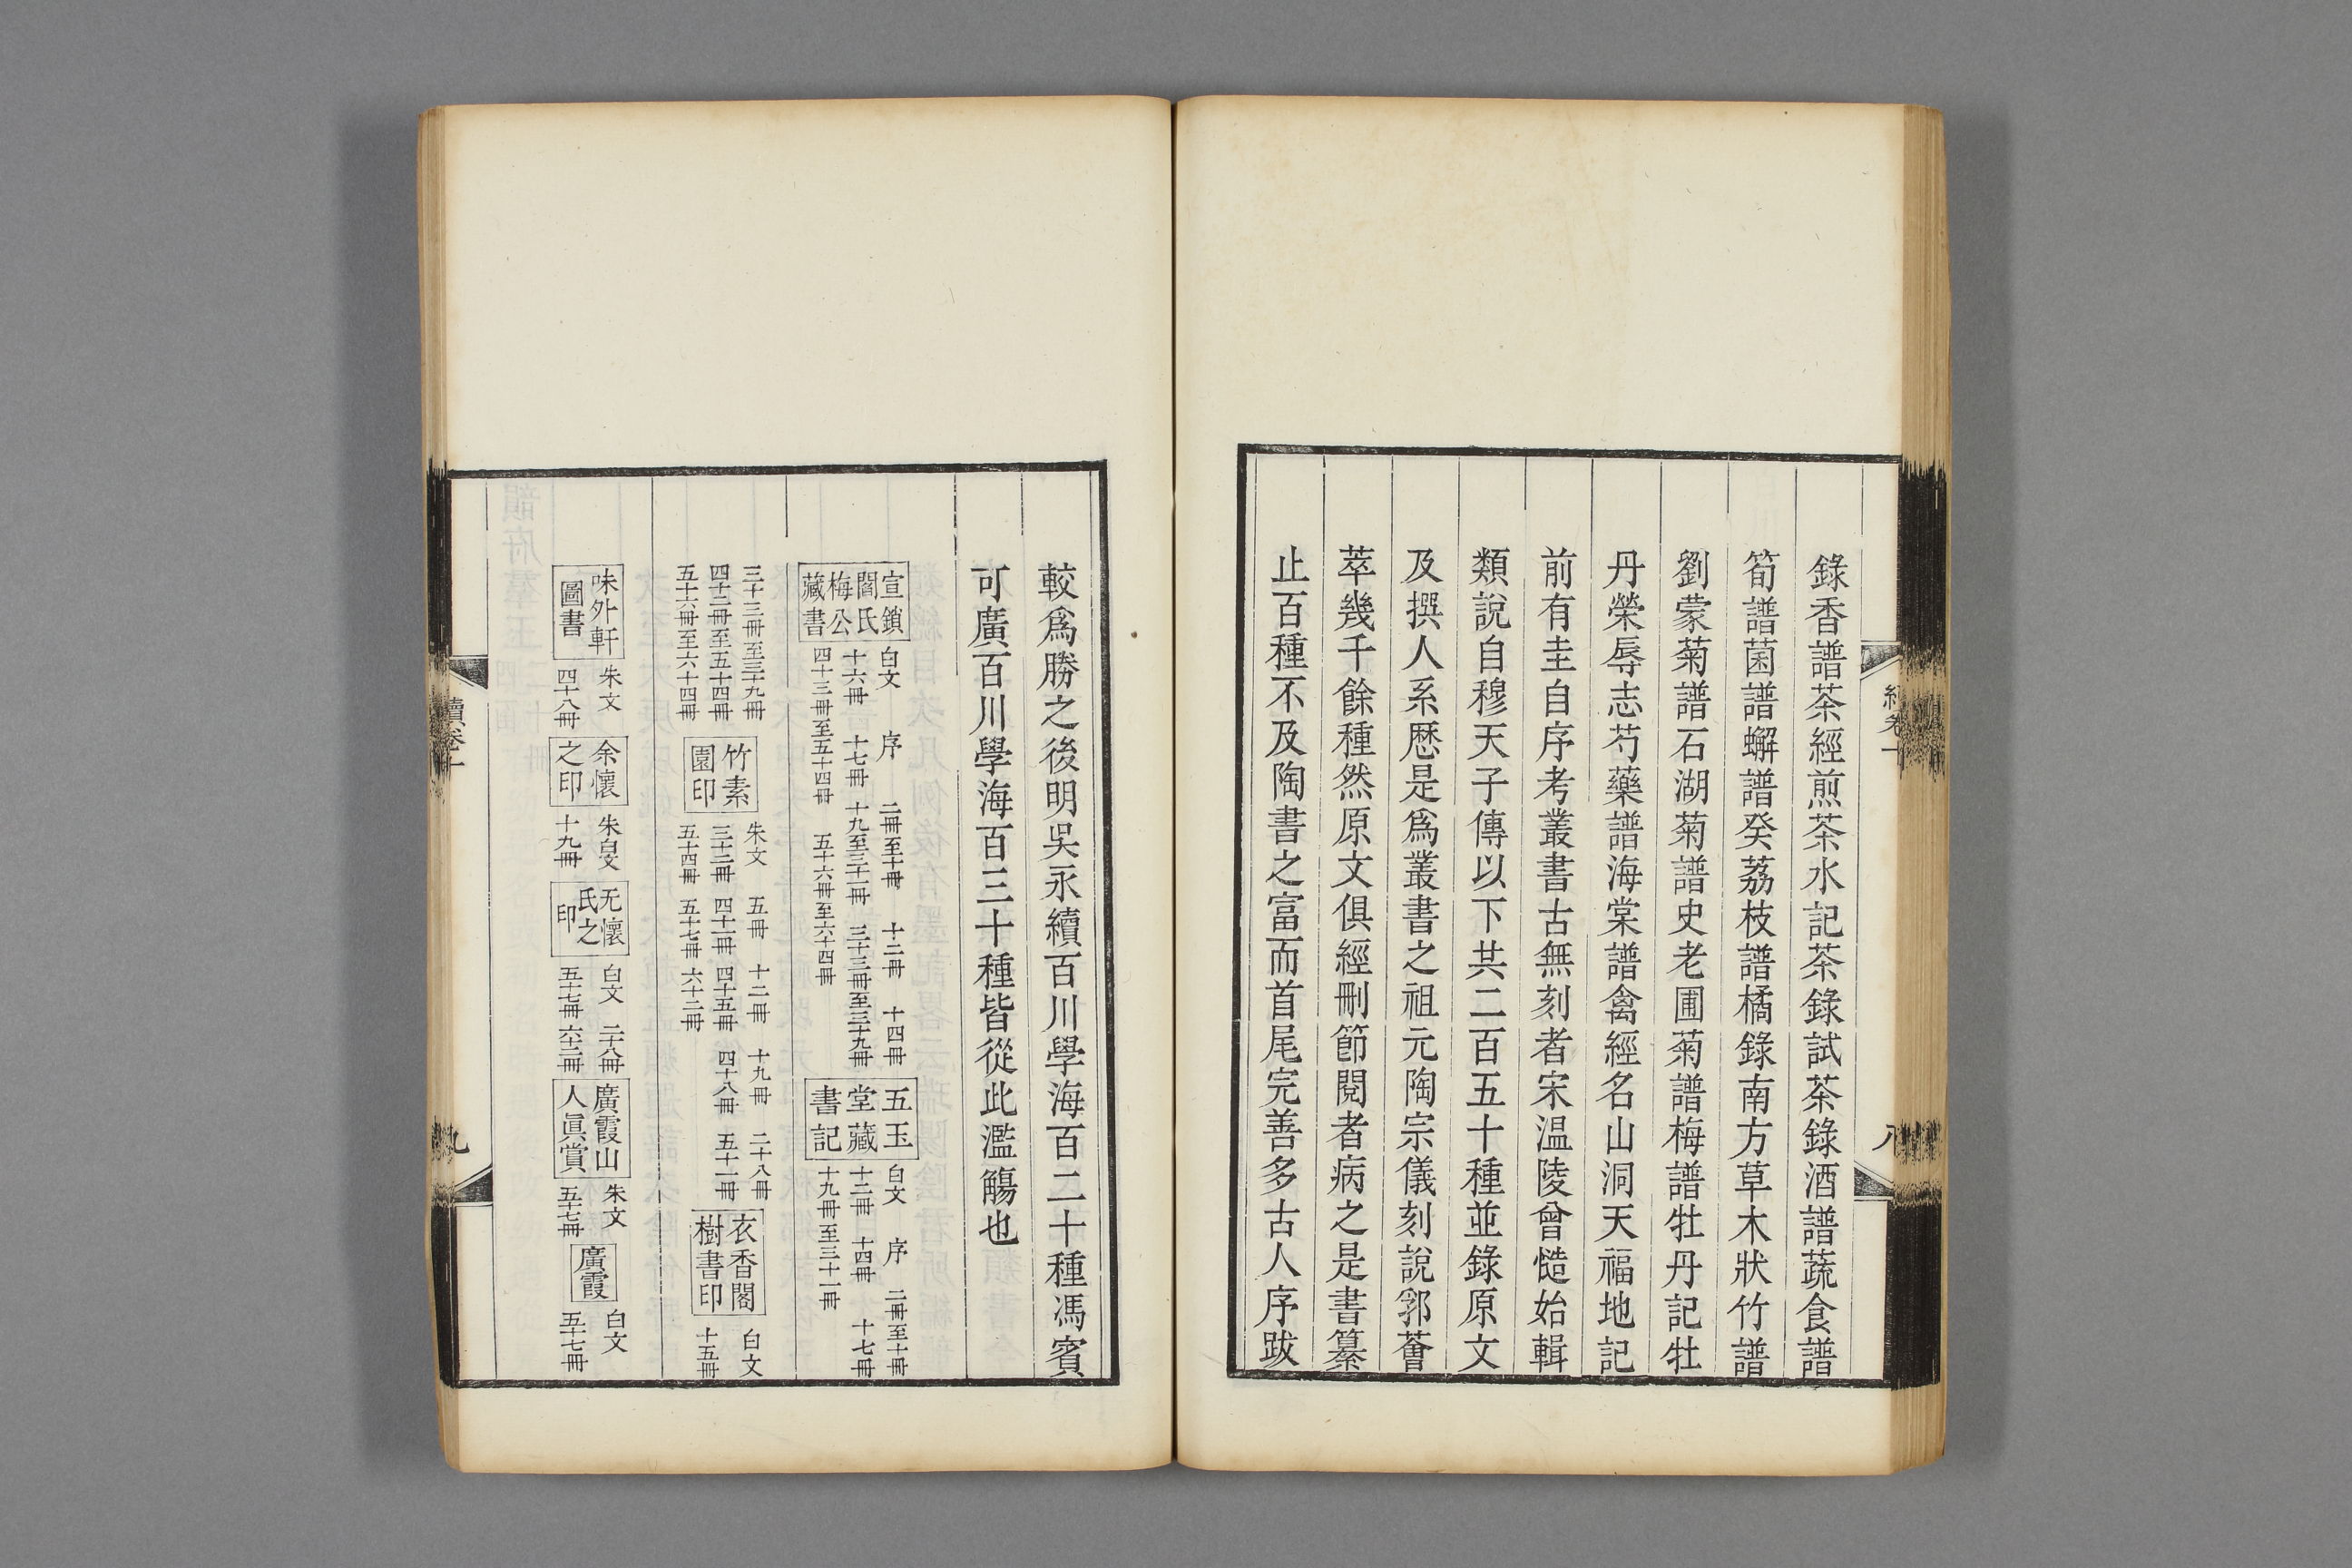 錄香譜茶經煎茶水記茶錄試茶錄酒譜蔬食譜
筍譜菌譜蠏譜癸荔枝譜橘錄南方草木狀竹譜
劉蒙菊譜石湖菊譜史老圃菊譜梅譜牡丹記牡
丹榮辱志芍藥譜海棠譜禽經名山洞天福地記
前有圭自序考叢書古無刻者宋温陵曾慥始輯
類說自穆天子傳以下共二百五十種並錄原文
及撰人系厯是爲叢書之祖元陶宗儀刻說郛薈
萃幾千餘種然原文俱經刪節閱者病之是書纂
止百種不及陶書之富而首尾完善多古人序跋
較爲勝之後明吳永續百川學海百二十種馮賓
可廣百川學海百三十種皆從此濫觴也
宣鎖
閻氏
梅公
藏書
白文 序 二冊至十冊 十二冊 十四冊
十六冊 十七冊 十九至三十一冊 三十三冊至三十九冊
四十三冊至五十四冊 五十六冊至六十四冊
五玉
堂藏
書記
白文 序 二冊至十冊
十二冊 十四冊 十七冊
十九冊至三十一冊
三十三冊至三十九冊
四十二冊至五十四冊
五十六冊至六十四冊
竹素
園印
朱文 五冊 十二冊 十九冊 二十八冊
三十二冊 四十一冊 四十五冊 四十八冊 五十一冊
五十四冊 五十七冊 六十二冊
衣香閣
樹書印
白文
十五冊
味外軒
圖書
朱文
四十八冊
余懷
之印
朱白文
十九冊
无懷
氏之
印
白文 二十八冊
五十七冊 六十二冊
廣霞山
人眞賞
朱文
五十七冊
廣霞
白文
五十七冊
續卷十
九
卷十
八